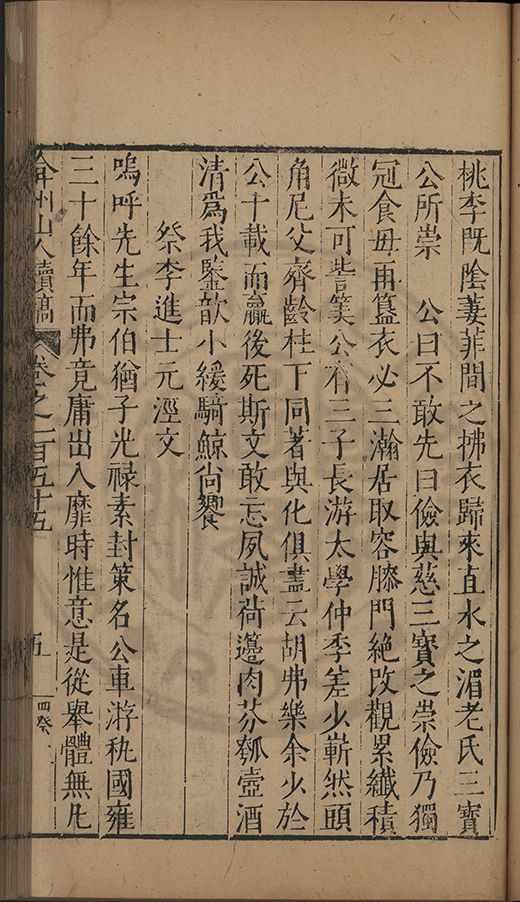 桃李既陰萋菲間之拂衣歸來直水之湄老氏三寶
公所崇　公曰不敢先曰儉與慈三寶之崇儉乃獨
冠食毋再簋衣必三澣居取容膝門絕改觀累纖積
微未可訾筭公有三子長游太學仲季差少嶄然頭
角尼父齊齡柱下同著與化俱盡云胡弗樂余少於
公十載而羸後死斯文敢忘夙誠荷籩肉芬瓠壺酒
清爲我鑒歆小緩騎鯨尙饗
祭李進士元涇文
嗚呼先生宗伯猶子光祿素封策名公車游秇國雍
三十餘年而弗竟庸出入靡時惟意是從舉體無凡
弇州山人續稿　卷之一百五十五　五　四癸